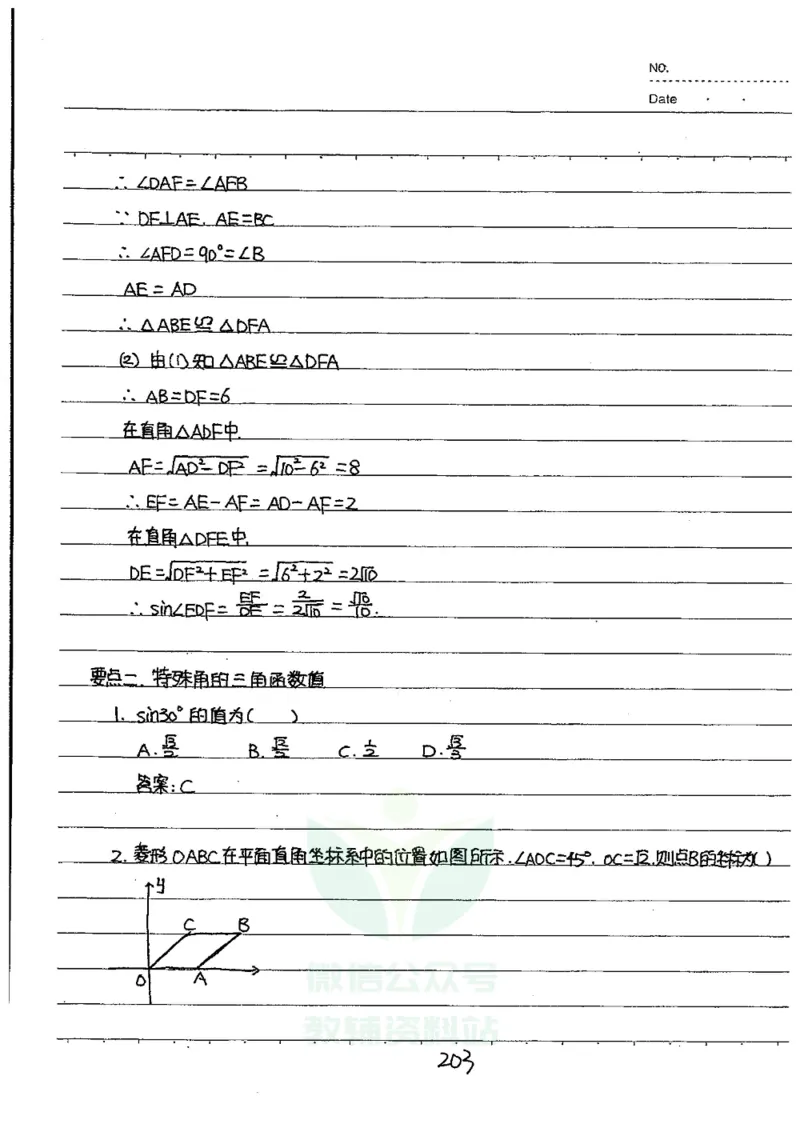 NO.
Date
∴ ∠DAF=∠AEB
∵ DF⊥AE. AE=BC
∴ ∠AFD=90°=∠B
AE=AD
∴ △ABE≌△DFA
(2) 由(1)知△ABE≌△DFA
∴ AB=DF=6
在直角△ADF中.
AF=√AD²-DF² =√10²-6² =8
∴ EF=AE-AF=AD-AF=2
在直角△DFE中.
DE=√DF²+EF² =√6²+2² =2√10
∴ sin∠EDF= EF/DE = 2/2√10 = √10/10.
要点二. 特殊角的三角函数值
1. sin30°的值为( )
A. √3/2 B. √2/2 C. 1/2 D. √3/3
答案:C
2. 菱形OABC在平面直角坐标系中的位置如图所示.∠AOC=45°. OC=√2.则点B的坐标为( )
y
C B
O A
微信公众号
教辅资料站
203